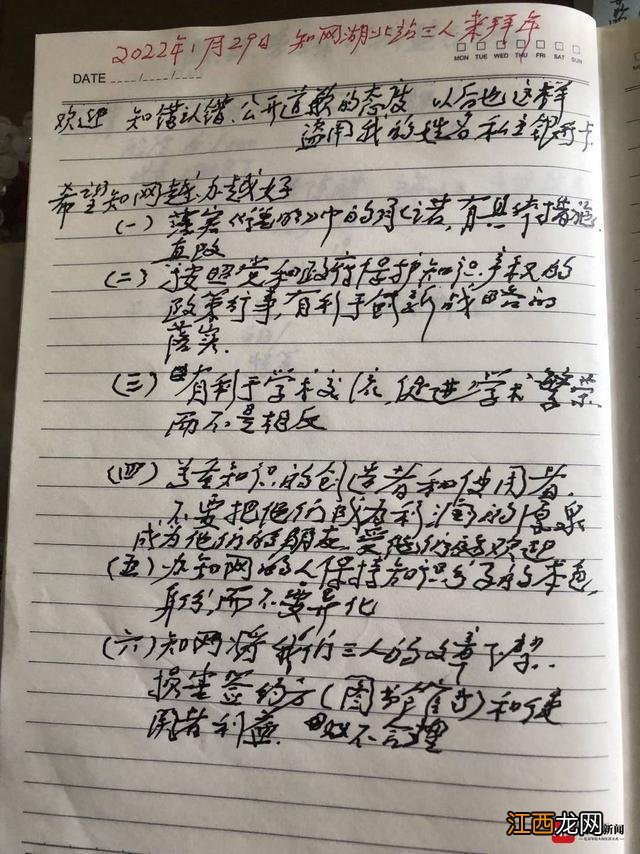 2022年1月29日 知网湖北站三人来拜年
MON TUE WED THU FRI SAT SUN
DATE
欢迎 知错认错、公开道歉的态度 以后也这样
盗用我的姓名私立银行卡
希望知网越办越好
(一) 落实《说明》中的承诺,有具体措施,
直改
(二) 按照党和政府保护知识产权的
政策行事,有利于创新战略的
落实.
(三) 有利于学术交流,促进学术繁荣
而不是相反
(四) 尊重知识的创造者和使用者,
不要把他们成为利润的源泉
成为他们的朋友,受他们的欢迎
(五) 办知网的人保持知识分子的本色,
身份,而不要异化
(六) 知网将我们三人的文章下架..
损害签约方(图书馆)和使
用者利益. 不合理
新闻
江西龙网